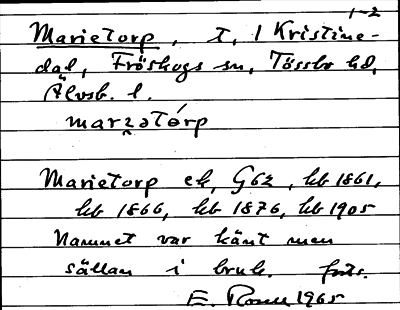 1-2
Marietorp, t, / Kristine-
dal, Fröskogs sn, Tössbo hd,
Älvsb. l.
marɪ̯ətórp
Marietorp ek, G62, kb 1861,
kb 1866, kb 1876, kb 1905
Namnet var känt men
sällan i bruk. forts.
E. 1965